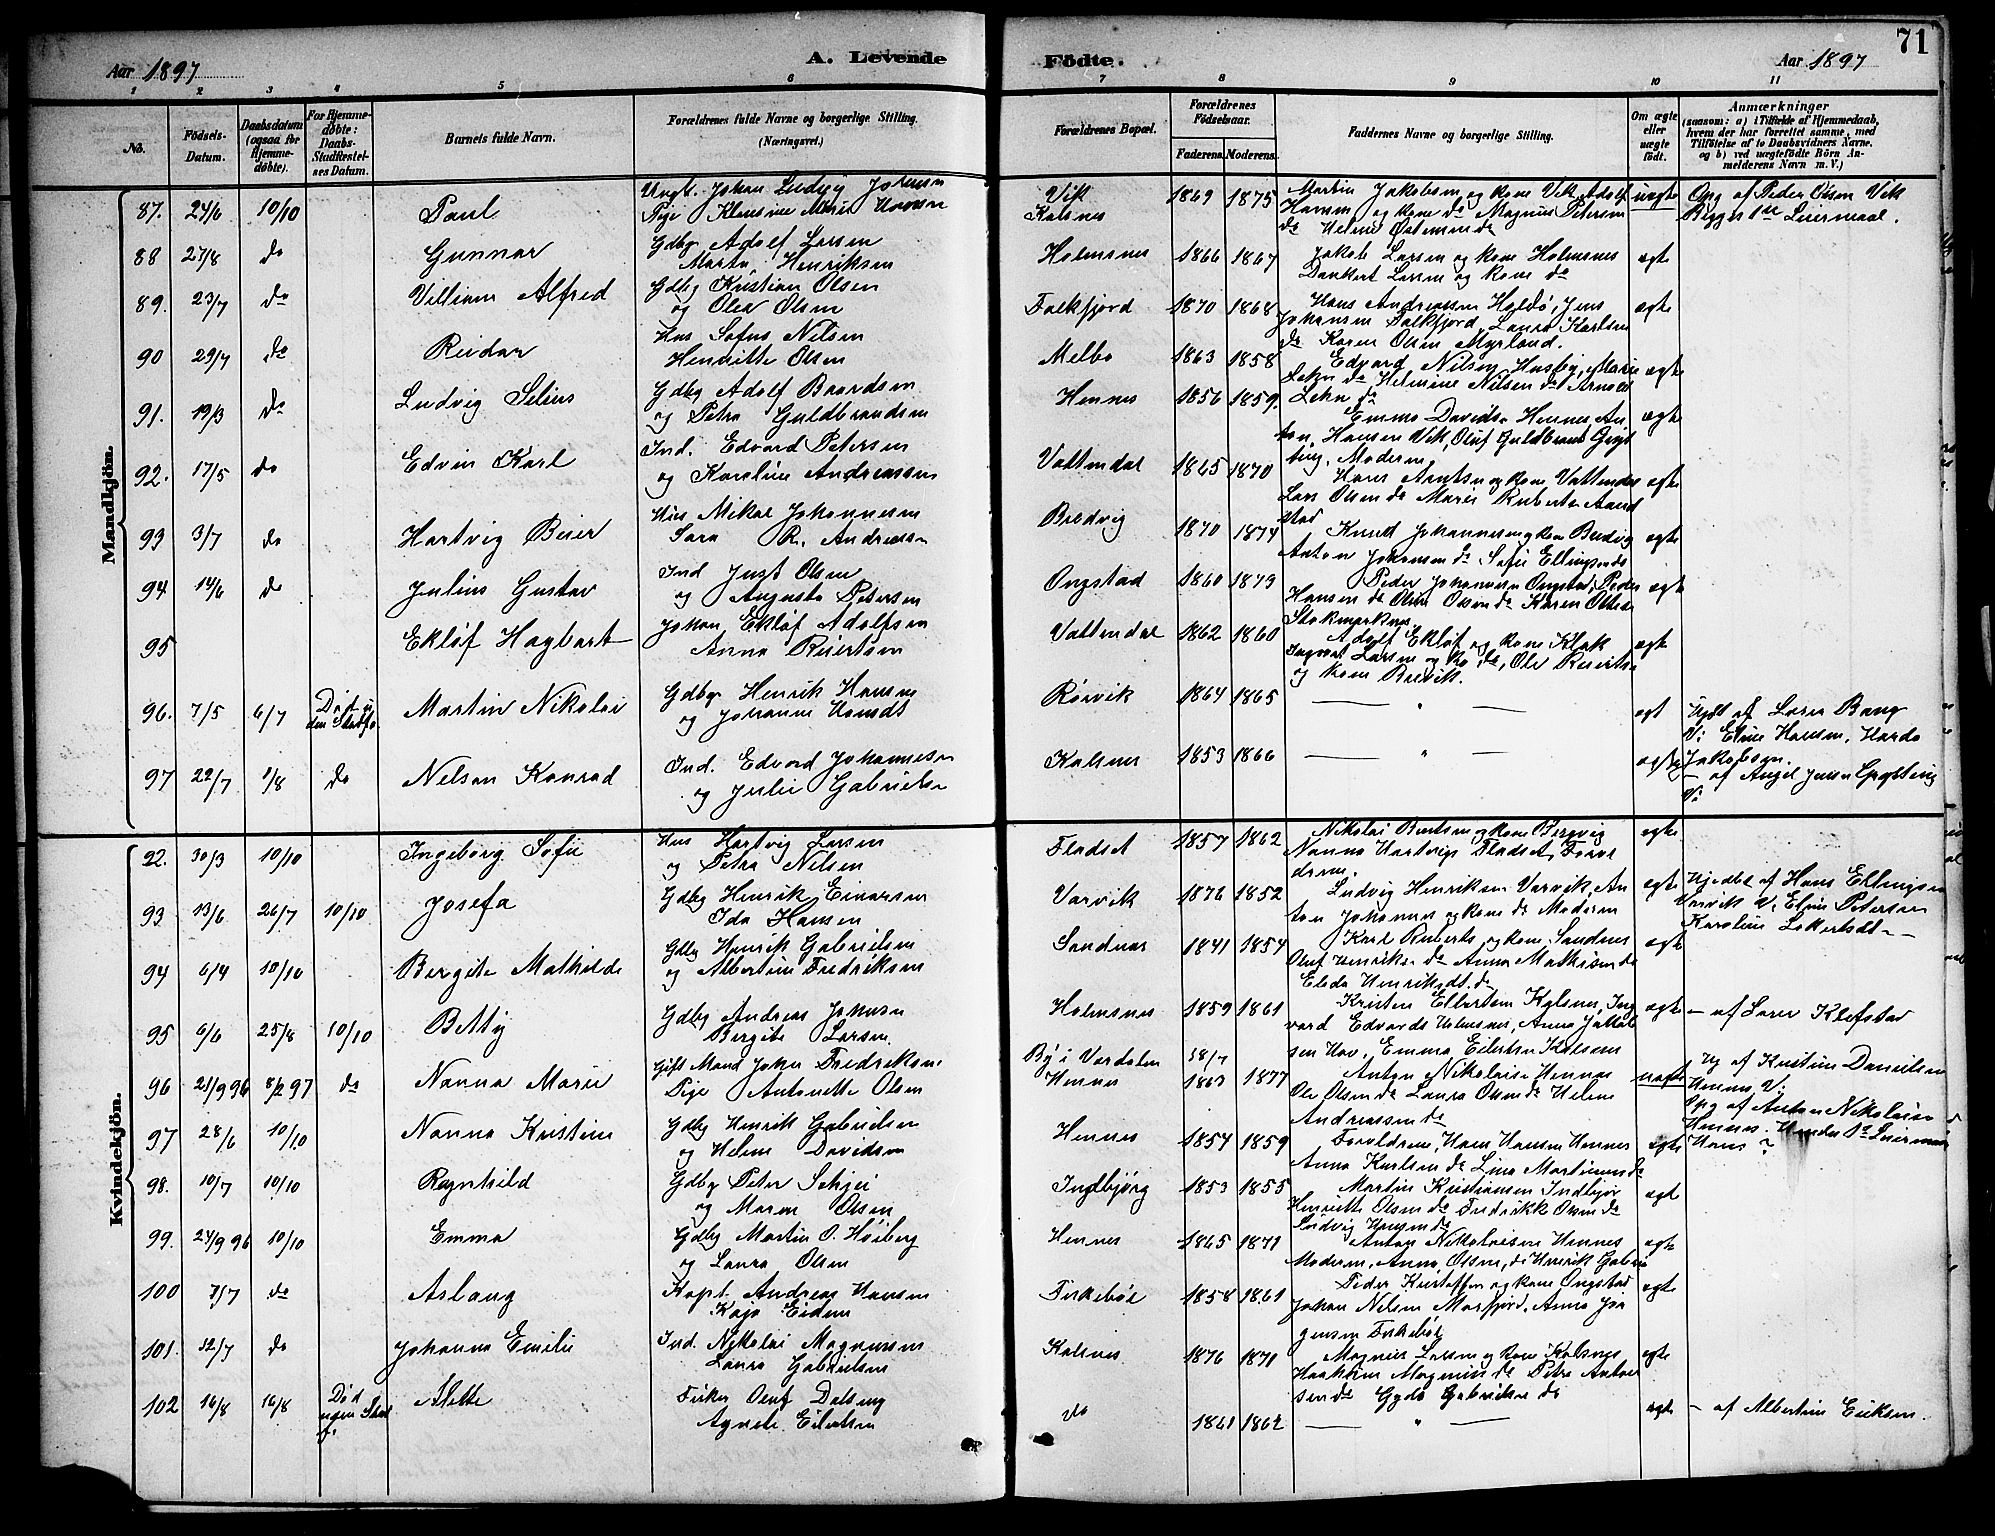 71
Aar 1897
A. Levende
Födte.
Aar 1897
1 2 3 4 5 6 7 8 9 10 11
No.
Födsels-
Datum.
Daabsdatum
(ogsaa for
Hjemme-
döbte).
For Hjemme-
döbte:
Daabs-
Stadfæstel-
ses Datum.
Barnets fulde Navn.
Forældrenes fulde Navne og borgerlige Stilling.
(Næringsvei.)
Forældrenes Bopæl.
Forældrenes
Födselsaar.
Faderens. Moderens.
Faddernes Navne og borgerlige Stilling.
Om ægte
eller
uægte
födt.
Anmærkninger
(saasom: a) i Tilfælde af Hjemmedaab,
hvem der har forrettet samme, med
Tilföielse af to Daabsvidners Navne.
og b) ved uægtefödte Börn An-
melderens Navn m. V.)
Mandkjön.
87. 24/6 10/10 Paul
Ungk. Johan Ludvig Johansen
Pige
Vik
Kalsnes
1869 1875
Martin Jakobsen og kone Vik
Hansen og kone do Magnus Petersen
uægte
Opg af Peder Olsen Vik
Begges 1ste Leiermaal.
88 27/8 do Gunnar
Gdbg Adolf Larsen
Marta Henriksen
Holmsnes 1866 1867
Jakob Larsen og kone Holmsnes
Dankert Larsen og kone do
ægte
89. 23/7 do Villiam Alfred
Gdbg Kristian Olsen
og Olea Olsen
Falkfjord 1870 1868
Hans Andreassen Holdø, Jens
Johansen Falkfjord, Laura Karlsen
do Karen Olsen Myrland.
ægte
90 29/7 do Reidar
Hus Sofus Nilsen
Henritte Olsen
Melbo 1863 1858
Edvard Nilsen Husby, Marie
Lekn do Helmine Nilsen do Arnold
Lekn do
ægte
91. 19/3 do Ludvig Selius
Gdbg Adolf Baardsen
og Petra Guldbrandsen
Hennes 1856 1859.
Emma Davids. Hennes, An
ton Hansen Vik, Oluf Guldbrands
Moderen
ægte
92. 17/5 do Edvin Karl
Ind. Edvard Petersen
og Karoline Andreassen
Vattendal 1865 1870
Hans Arntsen og kone Vattendal
Lars Olsen do Marie
ægte
93 3/7 do Hartvig Beier
Hus Nikal Johannesen
Sara R. Andreassen
Bredvig 1870 1874
Knud Johannesen og kone Bredvig
Anton Johansen do Sofie Ellingsen do
ægte
94 14/6 do Julius Gustav
Ind Just Olsen
og Augusta Petersen
Ongstad 1860 1873
Peder Johannesen Ongstad, Peder
Hansen do Oline Olsen do Karen Olsen
Stokmarknes
ægte
95 Ekløf Hagbart
Johan Ekløf Adolfsen
Anna Reiertsen
Vattendal 1862 1860
Adolf Ekløf og kone Klak
Ingvart Larsen og ko do, Ole Reierts.
og kone Breivik.
ægte
96. 7/5 6/7
Martin Nikolai
Gdbg Henrik Hansen
og Johanne
Rörvik 1864 1865
— " —
ægt
Hjdt af Lars Bang
V: Eline Hansen, Harda
Jakobsen.
97 22/7 1/8 do Nelson Konrad
Ind. Edvard Johannessen
og Julie Gabrielsen
Kalsnes 1853 1866
— " —
ægte
— af Angel Jensen
V:
Kvindekjön.
22. 30/3 10/10 Ingeborg Sofie
Hus Hartvig Larsen
og Petra Nilsen
Fladset 1857 1862
Nikolai Berntsen og kone Bergvig
Nanna Hartvigs. Fladset, Foræl
drene.
ægte
93 13/6 26/7 10/10 Josefa
Gdbg Henrik Einarsen
Ida Hansen
Varvik 1876 1852
Ludvig Henriksen Varvik, An
ton Johansen og kone do Moderen
ægte
Hjedbt af Hans Ellingsen
Varvik V: Eline Petersen
Karoline
94 6/4 10/10 Bergite Mathilde
Gdbg Henrik Gabrielsen
og Albertine Fredriksen
Sandnes 1841 1854
Karl Ruberts. og kone Sandnes
Oluf Henriks. do Anna Mathisen do
Elida Henriksdt. do
ægte
95 6/6 25/8 10/10 Betty
Gdbg Andreas Johnsen
Bergite Larsen
Holmsnes 1859 1861
Kristen Ellertsen Kalsnes, Ing
vard Edvards Holmsnes, Anna Jakob
sen Hov, Emma Eilertsen Kalsnes
ægte
— af Lars Klefstad
96 21/9 96 8/2 97 do Nanna Marie
Gift Mand Johan Fredriksen
Pige Antonette Olsen
By i Værdalen
Hennes
1863 1877
Anton Nikolaisen Hennes
Ole Olsen do Laura Olsen do Helene
Andreassen do
uægte
Hj af Kristine Danielsen
Hennes V:
Opg af Anton Nikolaisen
Hennes. Hendes 1ste Leiermaal
Hans ?
97 28/6 10/10 Nanna Kristine
Gdbg Henrik Gabrielsen
og Helene Davidsen
Hennes 1854 1859
Forældrene, Hans Hansen Hennes
Anna Karlsen do Lina Martinsen do
ægte
98. 10/7 10/10 Ragnhild
Gdbg Peter Schjei
og Maren Olsen
Indbjörg 1853 1855
Martin Kristiansen Indbjör
Henritte Olsen do Fredrikke Olsen do
Ludvig Hansen do
ægt
99. 24/9 96 10/10 Emma
Gdbg Martin O. Høiberg
og Laura Olsen
Hennes 1865 1871
Anton Nikolaisen Hennes
Moderen, Anna Olsen, do Henrik Gabri
ægte
100 7/7 do Aslaug
Kapt. Andreas Hansen
Kaja Eidem
Fiskebøl 1858 1861
Peder Kristoffersen og kone Ongstad
Johan Nelsen Morfjord, Anna Jør
gensen Fiskebøl
ægte
101. 12/7 do Johanna Emilie
Ind. Nikolai Magnussen
Laura Gabrielsen
Kalsnes 1876 1871
Magnus Larsen og kone Kalsnes
Haakon Magnusen do Petra Anders
sen do Gyda Gabrielsen do
ægte
102 16/8 16/8
Død
uden Stad
f.
Alette
Fisker Oluf Dalseng
Agnete Eilertsen
do 1861 1862
— " —
ægte
— af Albertine Eriksen.